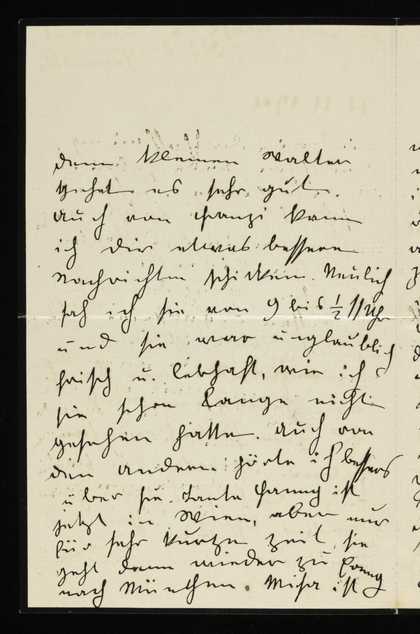 dem kleinen Walter
gehet es sehr gut.
Auch von Franzi kann
ich Dir etwas bessere
Nachrichten schicken. Neulich
sah ich sie von 9 bis ½ 11 Uhr
und sie war unglaublich
frisch u. lebhaft, wie ich
sie schon lange nicht
gesehen hatte. Auch von
den anderen hörte ich bessers
über sie. Tante Fanny ist
jetzt in Wien, aber nur
für sehr kurze Zeit, sie
geht dann wieder zu
nach München. Misa ist